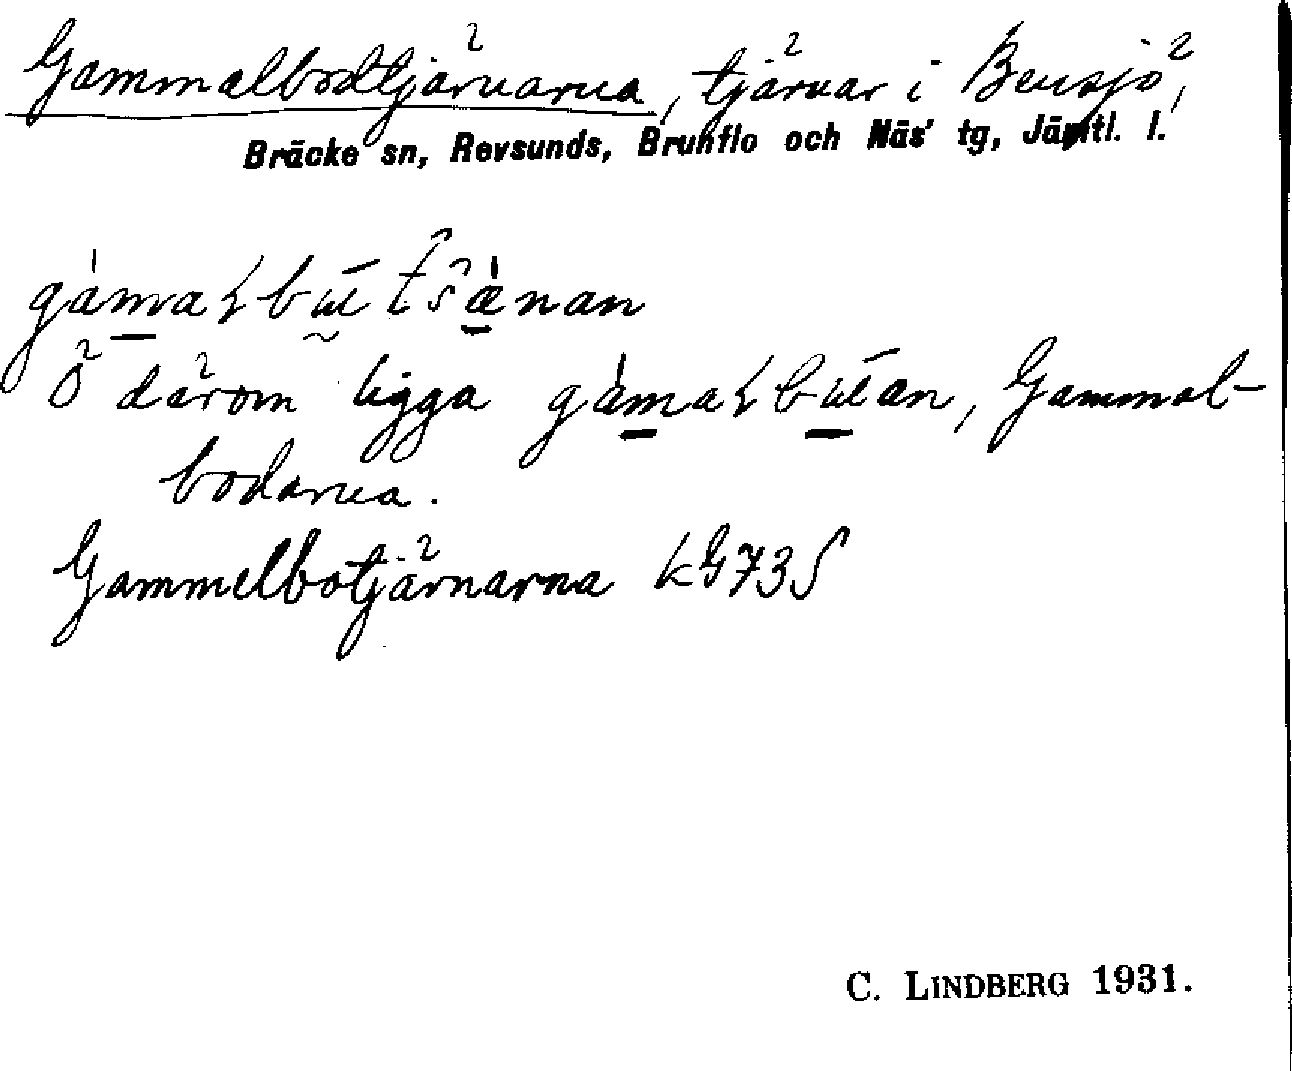 Gammalbodtjärnarna, tjärnar i Bensjö,
Bräcke sn, Revsunds, Brunflo och Näs' tg, Jämtl. l.
Ö därom ligga Gammal-
bodarna.
Gammelbotjärnarna kG73S
C. LINDBERG 1931.